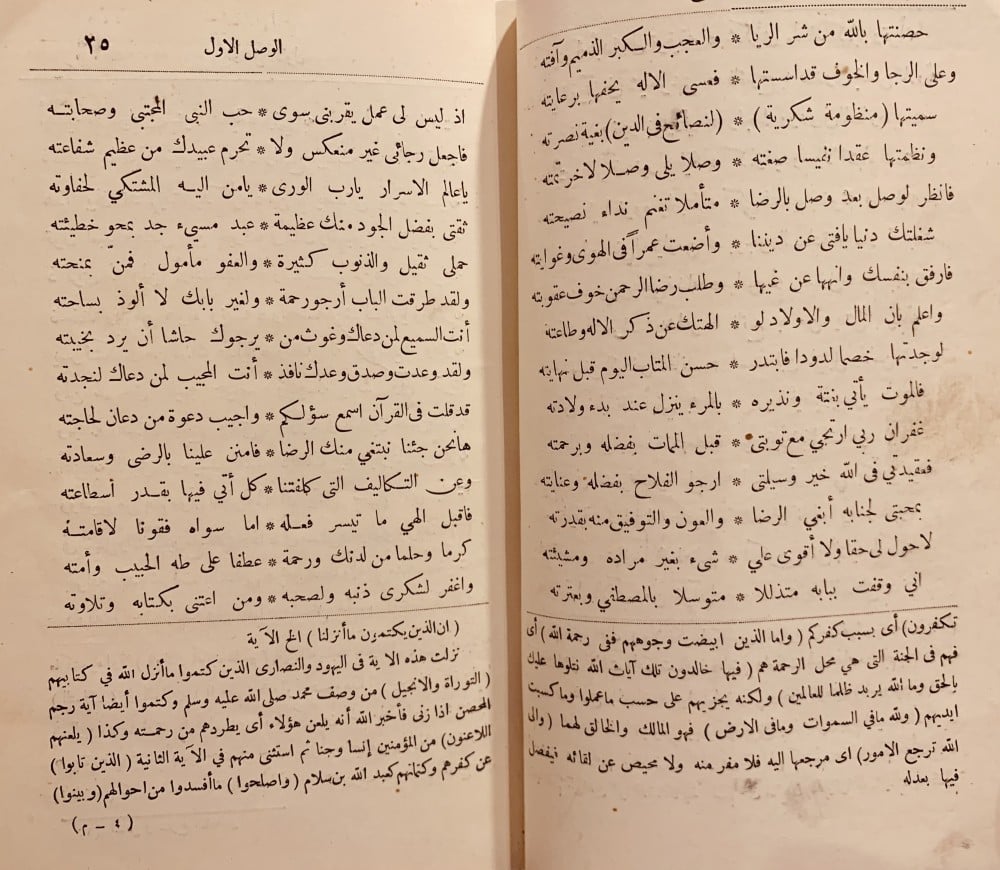 حصنتها بالله من شر الريا * والعجب والكبر الذميم وآفته
وعلى الرجا والخوف قد اسستها * فعسى الاله يحفها برعايته
سميتها (منظومة شكرية) * (لنصائح فى الدين) بغية نصرته
ونظمتها عقدا نفيسا صفته * وصلا يلى وصلا لاخر تمته
فانظر لوصل بعد وصل بالرضا * متأملا تغنم نداء نصيحته
شغلتك دنيا يافتى عن ديننا * وأضعت عمرا فى الهوى وغوايته
فارفق بنفسك وانهها عن غيها * وطلب رضا الرحمن خوف عقوبته
واعلم بان المال والاولاد لو * الهتك عن ذكر الاله وطاعته
لوجدتها خصما لدودا فابتدر * حسن المتاب اليوم قبل نهايته
فالموت يأتي بغتة ونذيره * بالمرء ينزل عند بدء ولادته
غفران ربي ارتجي مع توبتي * قبل الممات بفضله وبرحمته
فعقيدتي فى الله خير وسيلتى * ارجو الفلاح بفضله وعنايته
بمحبتى لجنابه أبغي الرضا * والعون والتوفيق منه بقدرته
لاحول لى حقا ولا أقوى علي * شىء بغير مراده ومشيئته
اني وقفت ببابه متذللا * متوسلا بالمصطفي وبعترته
تكفرون) أى بسبب كفركم (واما الذين ابيضت وجوههم ففى رحمة الله) أى
فهم فى الجنة التى هي محل الرحمة هم (فيها خالدون تلك آيات الله نتلوها عليك
بالحق وما الله يريد ظلما للعالمين) ولكنه يجزيهم على حسب ماعملوا وما كسبت
ايديهم (ولله مافي السموات ومافى الارض) فهو المالك والخالق لهما (والى
الله ترجع الامور) اى مرجعها اليه فلا مفر منه ولا محيص عن لقائه فيفصل
فيها بعدله
الوصل الاول
٢٥
اذ ليس لى عمل يقربنى سوى * حب النبي المجتبى وصحابته
فاجعل رجائى غير منعكس ولا * تحرم عبيدك من عظيم شفاعته
ياعالم الاسرار يارب الورى * يامن اليه المشتكي لحفاوته
ثقتى بفضل الجود منك عظيمة * عبد مسيء جد بمحو خطيئته
حملى ثقيل والذنوب كثيرة * والعفو مأمول فمنّ بمنحته
ولقد طرقت الباب أرجو رحمة * ولغير بابك لا ألوذ بساحته
أنت السميع لمن دعاك وغوث من * يرجوك حاشا أن يرد بخيبته
ولقد وعدت وصدق وعدك نافذ * أنت المجيب لمن دعاك لنجدته
قد قلت فى القرآن اسمع سؤلكم * واجيب دعوة من دعان لحاجته
هانحن جئنا نبتغي منك الرضا * فامنن علينا بالرضى وسعادته
وعن التكاليف التى كلفتنا * كل أتي فيها بقدر اسطاعته
فاقبل الهي ما تيسر فعله * اما سواه فقونا لاقامته
كرما وحلما من لدنك ورحمة * عطفا على طه الحبيب وأمته
واغفر لشكرى ذنبه ولصحبه * ومن اعتنى بكتابه وتلاوته
(ان الذين يكتمون ما أنزلنا) الخ الآية
نزلت هذه الاية فى اليهود والنصارى الذين كتموا ما أنزل الله في كتابيهم
(التوراة والانجيل) من وصف محمد صلى الله عليه وسلم وكتموا أيضا آية رجم
المحصن اذا زنى فأخبر الله أنه يلعن هؤلاء أى يطردهم من رحمته وكذا (يلعنهم
اللاعنون) من المؤمنين إنسا وجنا ثم استثنى منهم في الآية الثانية (الذين تابوا)
عن كفرهم وكتمانهم كعبد الله بن سلام (واصلحوا) ماأفسدوا من احوالهم (وبينوا)
(٤ - م)